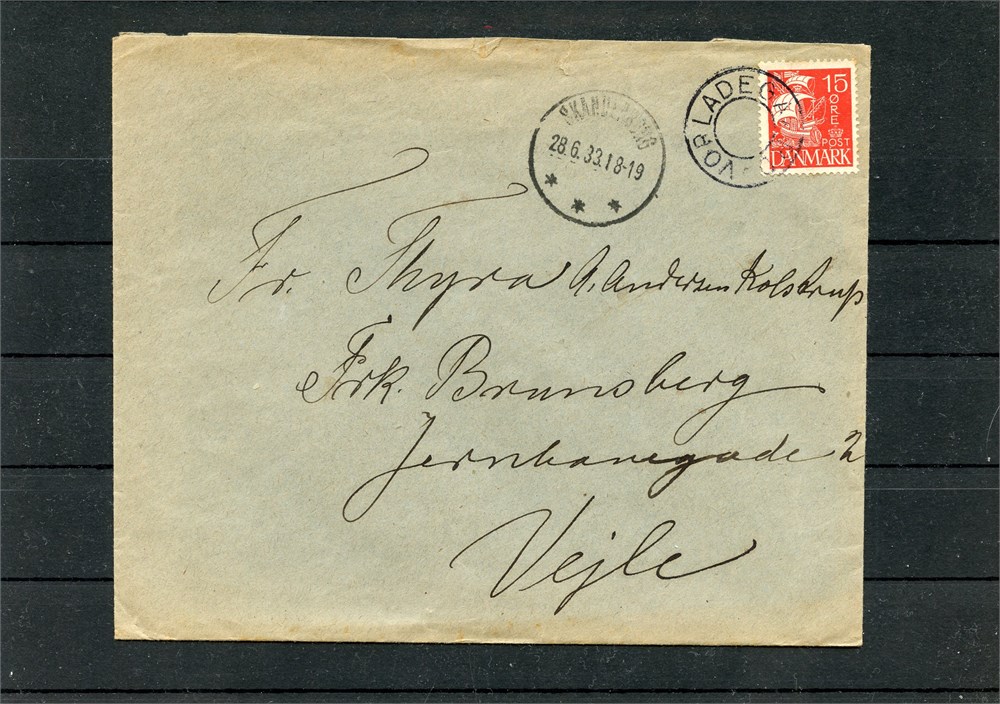 SKANDERBORG
28.6.33.18-19
VOR LADEG
15
ØRE
POST
DANMARK
Fr. Thyra A. Andersen Kolstrup
Frk. Brunsberg
Jernbanegade 2
Vejle